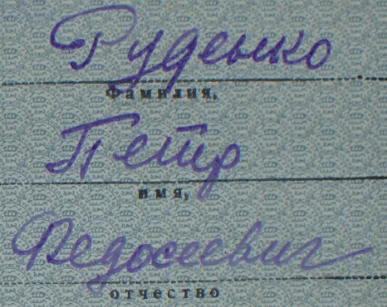 Руденко
Фамилия,
Петр
имя,
Федосеевич
отчество